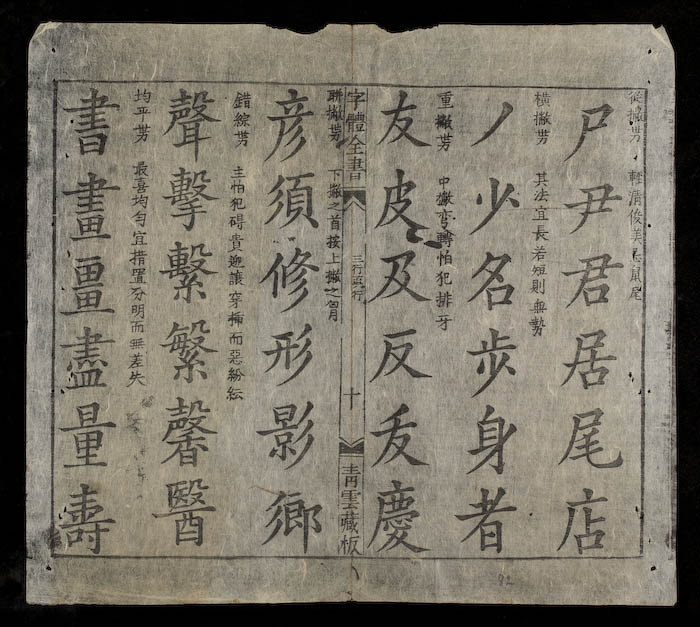 從撇势 輕清俊美 鼠尾
尸尹君居尾店
橫撇势 其法宜長若短則無勢
丿少名步身者
重撇势 中撇弯轉怕犯排牙
友皮及反慶
字體全書 三行 行 十 青雲藏板
聯撇势 下撇之首按上撇之胷
彦須修形影鄉
錯綜势 主怕犯碍貴迎讓穿揷而惡紛紜
聲擊繫繁馨醫
均平势 最喜均勻宜措置分明而無差失
書畫畺盡量壽